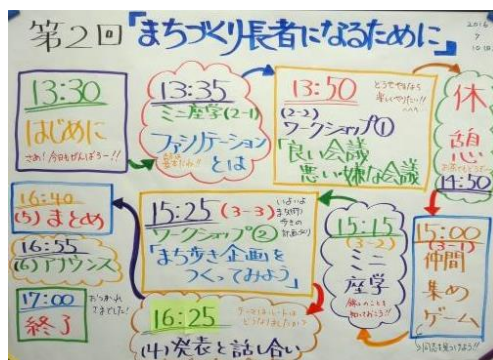 第2回「まちづくり長者になるために」
2016
13:30
はじめに
さぁ!今日もがんばろー!!
13:35
ミニ座学(2-1)
ファシリテーション
とは
13:50
(2-2)
ワークショップ①
「良い会議
悪い・嫌な会議」
休
憩
14:50
15:00
(3-1)
仲間
集め
ゲーム
15:15
(3-2)
ミニ
座学
15:25 (3-3)
いよいよ
ワークショップ②
「まち歩き企画を
つくってみよう」
16:25
(4)発表と話し合い
16:40
(5)まとめ
16:55
(6)アナウンス
17:00
おつかれ
さまでした!
終了